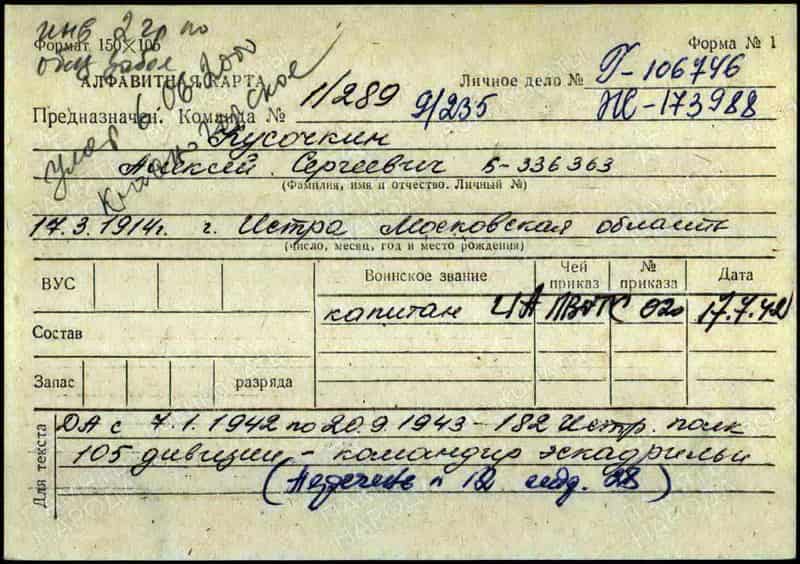 инв 2 гр по
Формат 150×105
Форма № 1
общ забол
АЛФАВИТНАЯ КАРТА
Личное дело № Г-106746
Предназначен. Команда № 1/289 9/235 НС-173988
умер 6.08.2000
Кунцевское
Кусочкин
Алексей Сергеевич Б-336363
(Фамилия, имя и отчество. Личный №)
17.3.1914г. г. Истра Московская область
(число, месяц, год и место рождения)
ВУС
Воинское звание
Чей приказ
№ приказа
Дата
капитан ИА 020 17.7.42
Состав
Запас
разряда
Для текста
ДА с 7.1.1942 по 20.9.1943 - 182 Истр. полк
105 дивизии - командир эскадрильи
(Перечень п 12 стр. 28)